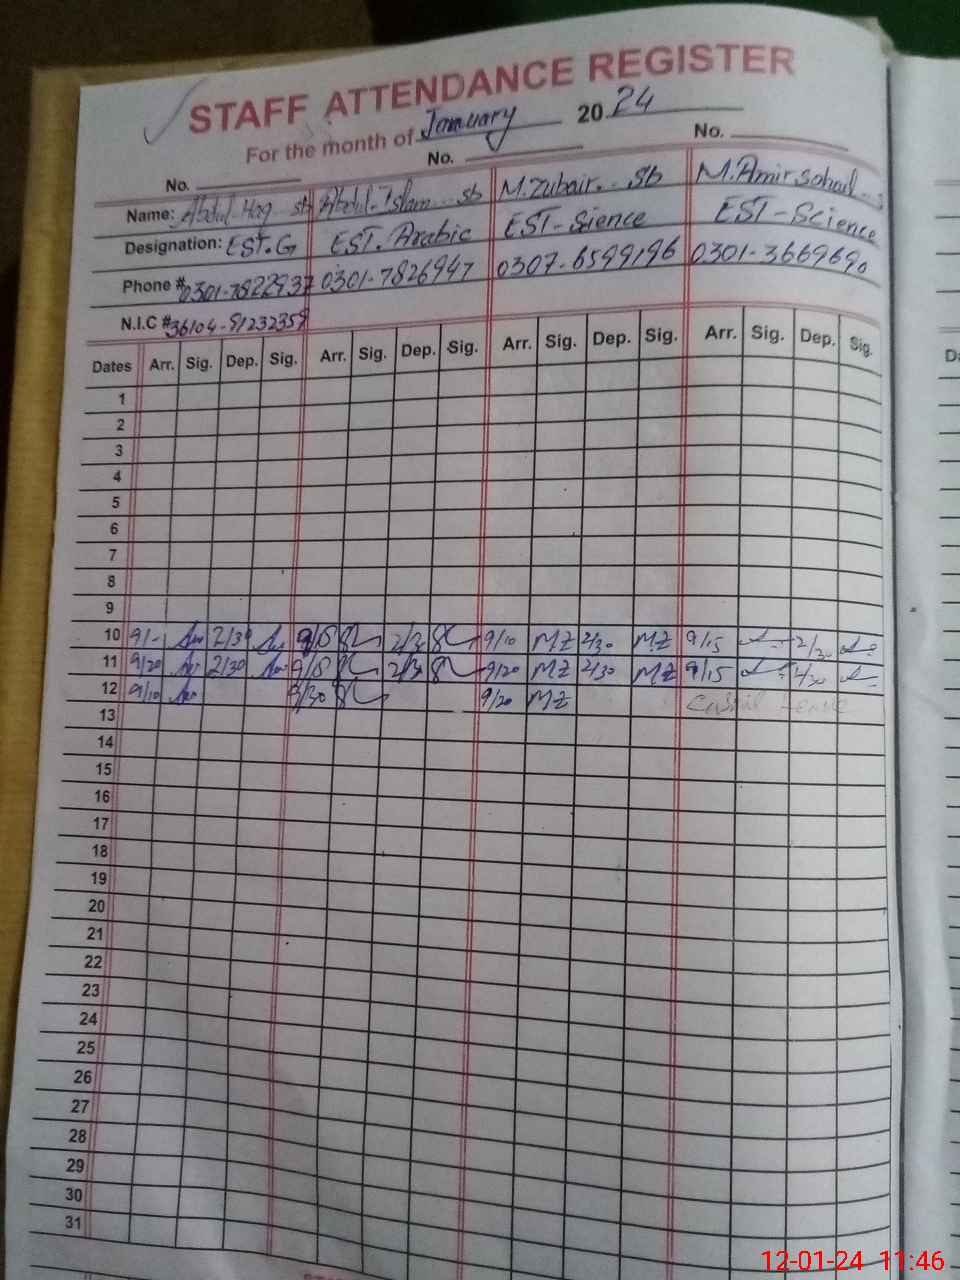 STAFF ATTENDANCE REGISTER
For the month of January 2024
No. No. No.
Name: Abdul Haq sb Abdul Islam sb M.Zubair. sb M.Amir sohail
Designation: EST.G EST. Arabic EST-Sience EST-Science
Phone # 0301-7822937 0301-7826947 0307-6599196 0301-3669690
N.I.C # 36104-91232359
Dates Arr. Sig. Dep. Sig. Arr. Sig. Dep. Sig. Arr. Sig. Dep. Sig. Arr. Sig. Dep. Sig.
1
2
3
4
5
6
7
8
9
10 9/- 2/30 9/15 2/30 9/10 MZ 2/30 MZ 9/15 2/30
11 9/20 2/30 9/15 2/30 9/20 MZ 2/30 MZ 9/15 2/30
12 9/10 9/30 9/20 MZ
13
14
15
16
17
18
19
20
21
22
23
24
25
26
27
28
29
30
31
12-01-24 11:46